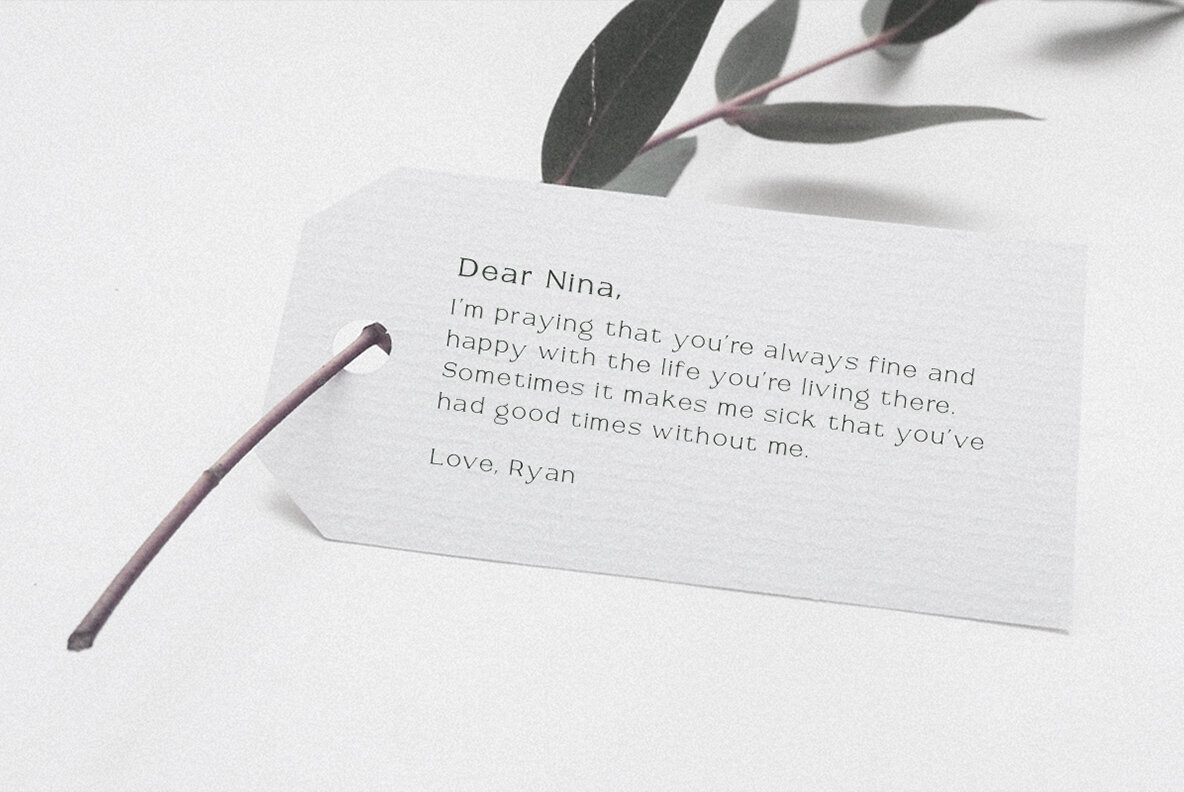 Dear Nina,
I'm praying that you're always fine and
happy with the life you're living there.
Sometimes it makes me sick that you've
had good times without me.
Love, Ryan